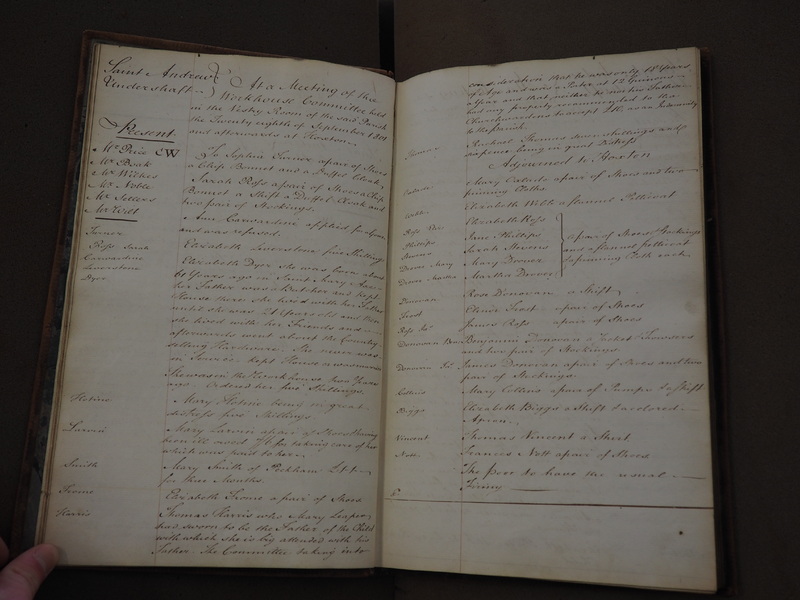 Saint Andrew
Undershaft
At a Meeting of the
Workhouse Committee held
in the Vestry Room of the said Parish
the Twenty eighth of September 1801
and afterwards at Hoxton
Present
Mr Price CW
Mr Beak
Mr Wilkes
Mr Noble
Mr Sellers
To Sophia Turner a pair of Shoes
a Chip Bonnet and a Duffel Cloak
Turner
Ross Sarah
Sarah Ross a pair of Shoes a Chip
Bonnet a Shift a Duffel Cloak and
two pair of Stockings
Carwardine
Ann Carwardine applied for
and was refused
Elizabeth five Shillings
Dyer
Elizabeth Dyer she was born about
61 Years ago in Saint Mary Axe
her Father was a Butcher and kept
House there she lived with her Father
until she was 21 Years old and then
she lived with her Friends and
afterwards went about the Country
selling Hardware She never was
in Service kept House or was married
She was in the Workhouse two Years
ago Ordered her five Shillings
Mary being in great
distress five Shillings
Mary a pair of Shoes having
been ill and for taking care of her
which was paid to her
Smith
Mary Smith of Peckham
for three Months
Froms
Elizabeth Froms a pair of Shoes
Harris
Thomas Harris who Mary Leaper
has sworn to be the Father of the Child
with which she is big attended with his
Father The Committee taking into
consideration that he was only 18 Years
of Age and was a at 12 Guineas
a Year and that neither he nor his Father
had any property recommended to the
Churchwardens to accept as an Indemnity
to the Parish
Thomas
Rachael Thomas seven shillings and
sixpence being in great Distress
Adjourned to Hoxton
Mary a pair of Shoes and two
Webb
Elizabeth Webb a flannel Petticoat
Ross
Elizabeth Ross
Phillips
Jane Phillips
Sarah Stevens
Mary
Martha
a pair of Shoes Stockings
and a flannel petticoat
Cloth each
Donovan
Rose Donovan a Shift
Frost
Frost a pair of Shoes
Ross Jas
James Ross a pair of Shoes
Donovan Ben
Benjamin Donovan a Jacket Trowsers
and two pair of Stockings
Donovan Jas
James Donovan a pair of Shoes and two
pair of Stockings
Collins
Mary Collins a pair of Pumps & Shift
Biggs
Elizabeth Biggs a Shift & colored
Apron
Vincent
Thomas Vincent a Shirt
Nott
Frances Nott a pair of Shoes
The Poor to have the usual